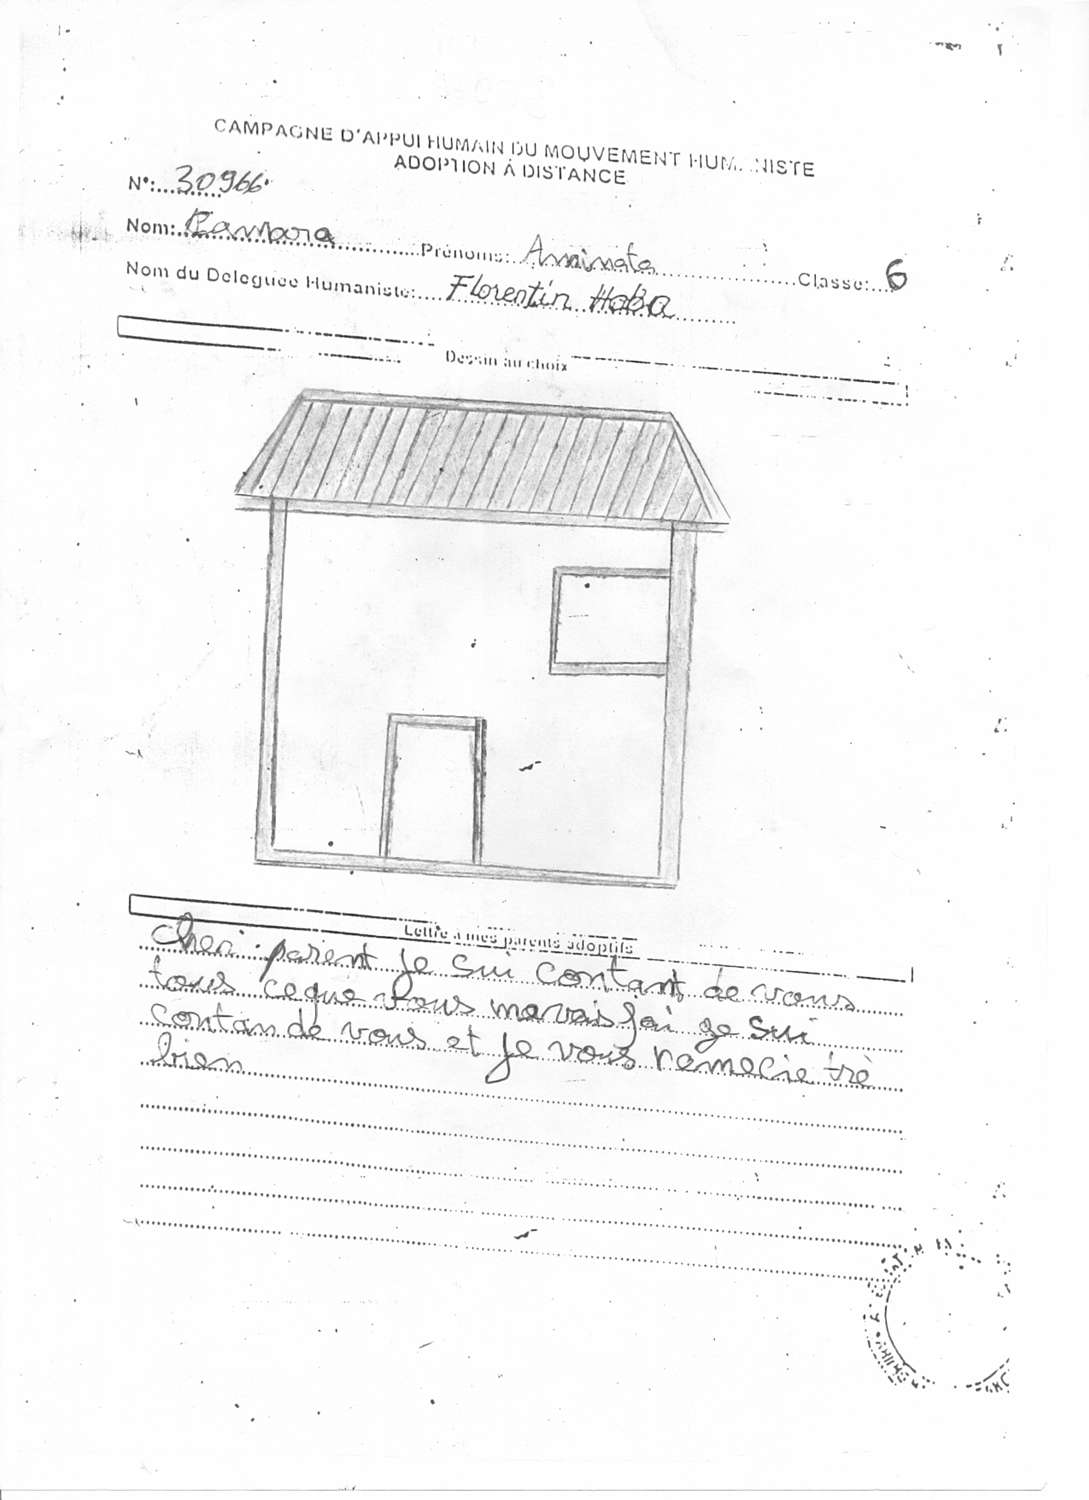 CAMPAGNE D'APPUI HUMAIN DU MOUVEMENT HUM...NISTE
ADOPTION À DISTANCE
N°:...30966
Nom:...Camara...Prénoms:...Aminata...Classe:...6
Nom du Deleguée Humaniste:...Florentin Haba
Dessin au choix
Lettre à mes parents adoptifs
Cheri parent je sui contant de vous
tous ceque vous mavais fai ge sui
contan de vous et je vous remecie trè
bien